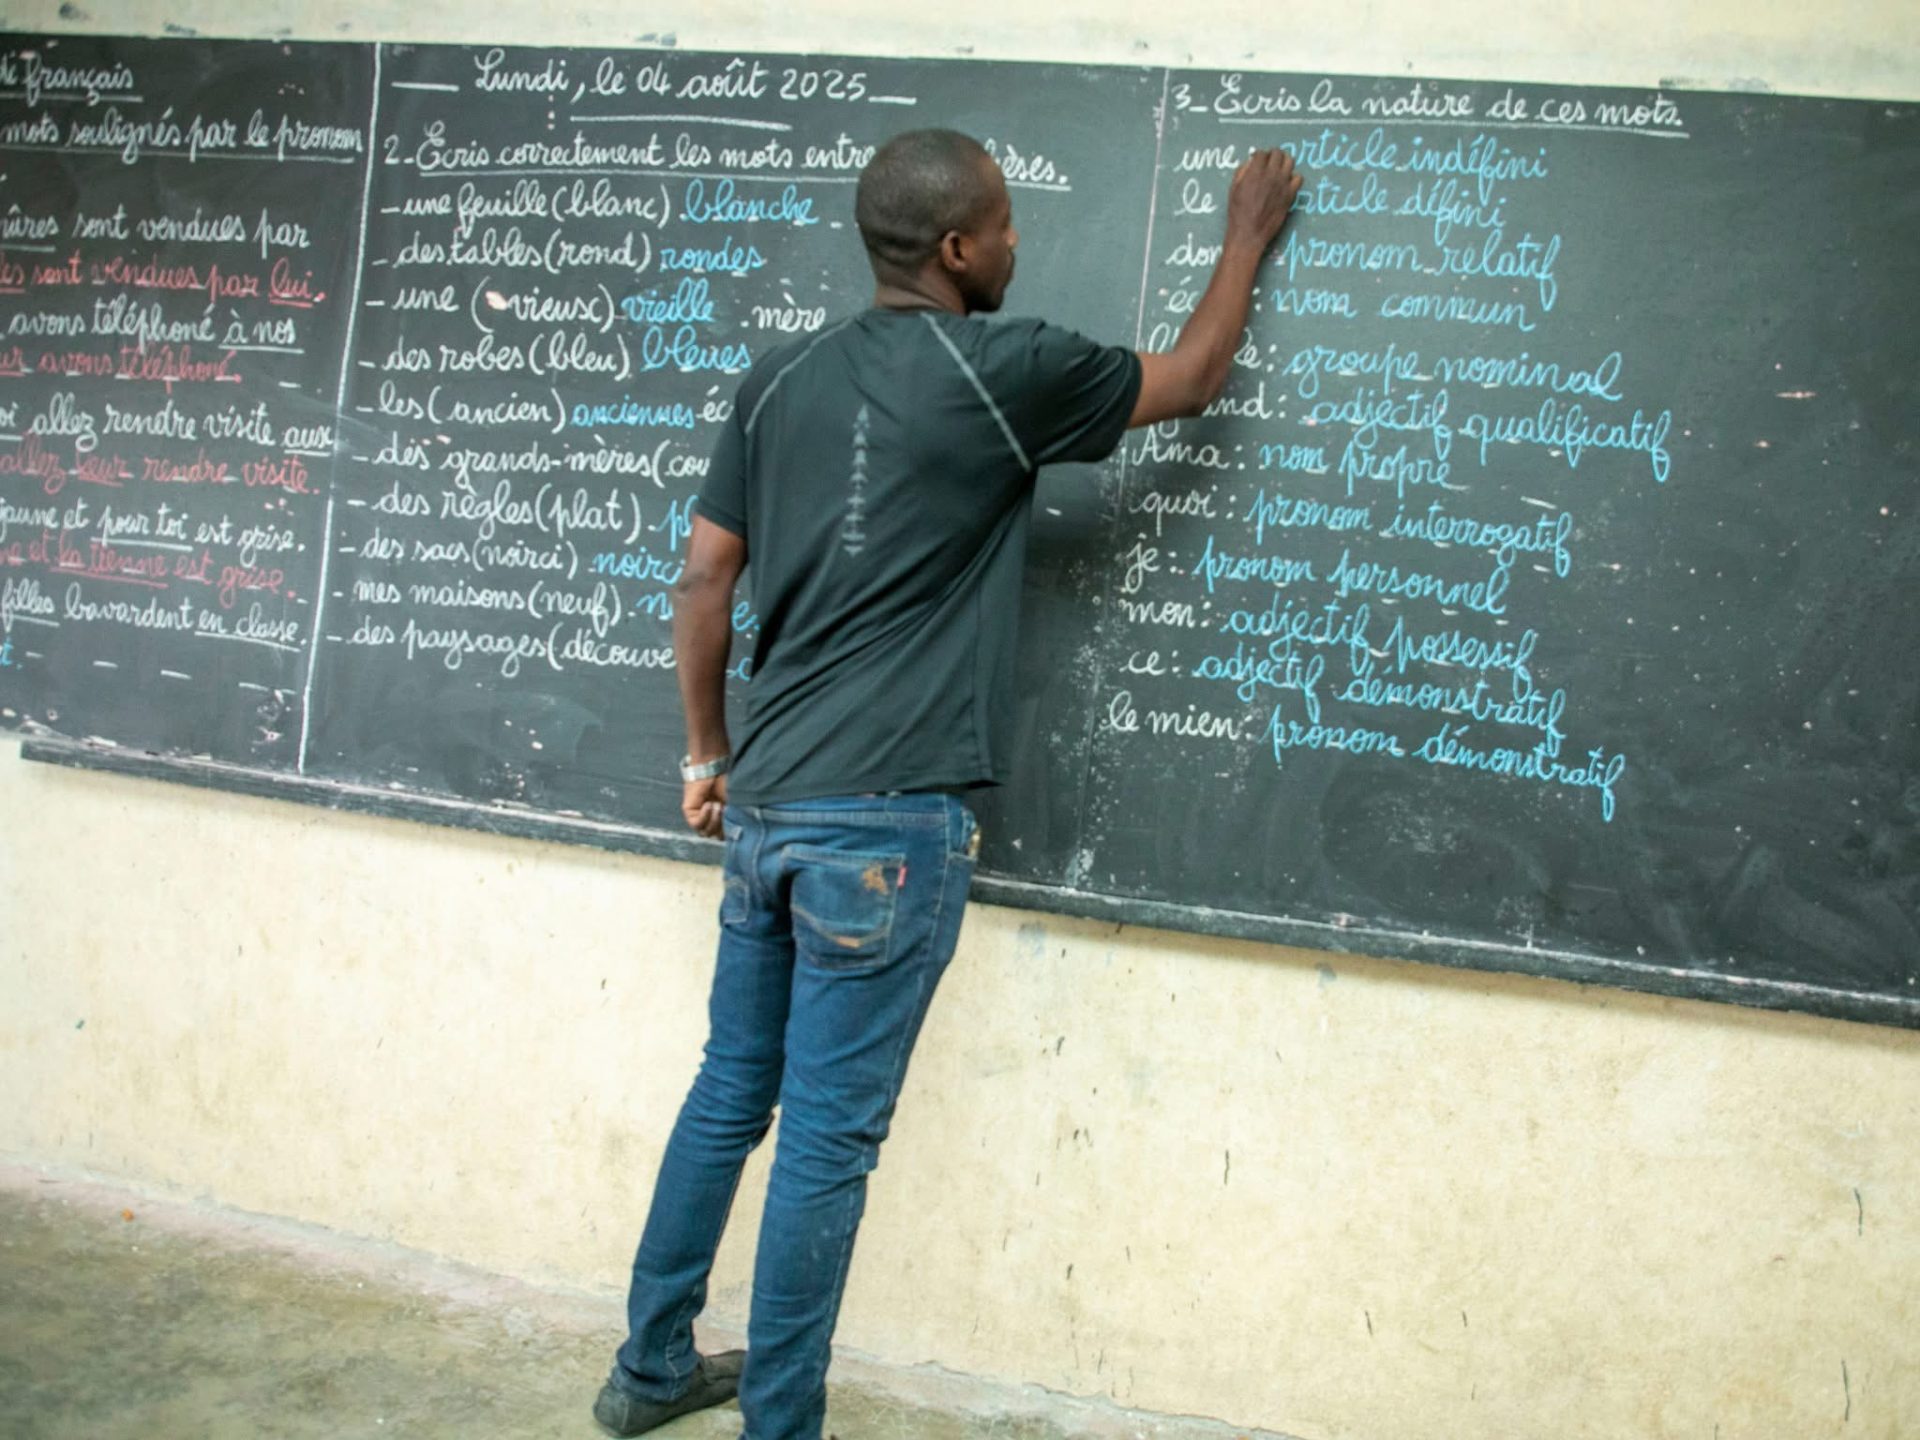 français
mots soulignés par le pronom
sont vendues par
sont vendues par lui.
avons téléphoné à nos
avons téléphoné.
allez rendre visite aux
allez leur rendre visite.
jaune et pour toi est grise.
et la tienne est grise.
filles bavardent en classe.
Lundi, le 04 août 2025
2-Écris correctement les mots entre
-une feuille (blanc) blanche
-des tables (rond) rondes
-une (vieux) vieille mère
-des robes (bleu) bleues
-les (ancien) anciennes
-des grands-mères (
-des règles (plat)
-des sacs (noirci)
-mes maisons (neuf)
-des paysages (
3-Écris la nature de ces mots.
une : article indéfini
le article défini
pronom relatif
: nom commun
: groupe nominal
: adjectif qualificatif
Ama : nom propre
quoi : pronom interrogatif
je : pronom personnel
mon : adjectif possessif
ce : adjectif démonstratif
le mien : pronom démonstratif